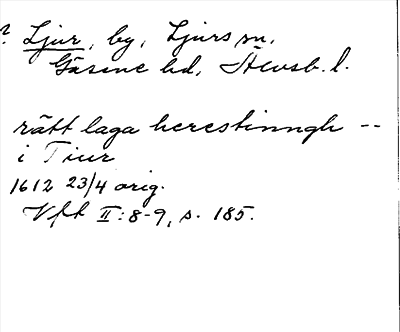 ? Ljur, by, Ljurs sn,
Gäsene hd, Älvsb. l.
rätt laga herestinngh --
i Tiur
1612 23/4 orig.
Vft II:8-9, s. 185.